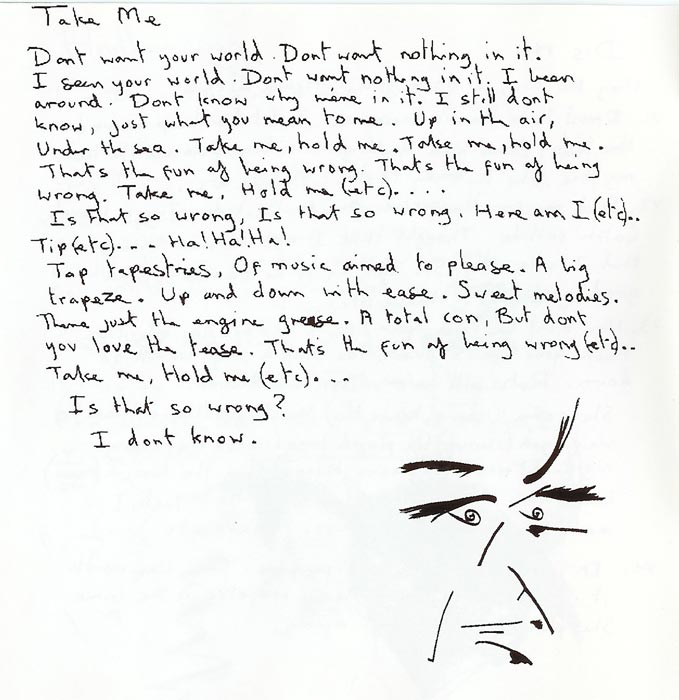 Take Me
Dont want your world. Dont want nothing in it.
I seen your world. Dont want nothing in it. I been
around. Dont know why in it. I still dont
know, just what you mean to me. Up in the air,
Under the sea. Take me, hold me. Take me, hold me.
That's the fun of being wrong. That's the fun of being
wrong. Take me, Hold me (etc)....
Is that so wrong, Is that so wrong. Here am I (etc)..
Tip (etc)... Ha! Ha! Ha!
Tap tapestries, Of music aimed to please. A big
trapeze. Up and down with ease. Sweet melodies.
just the engine grease. A total con, But dont
you love the tease. That's the fun of being wrong (etc)..
Take me, Hold me (etc)...
Is that so wrong?
I dont know.